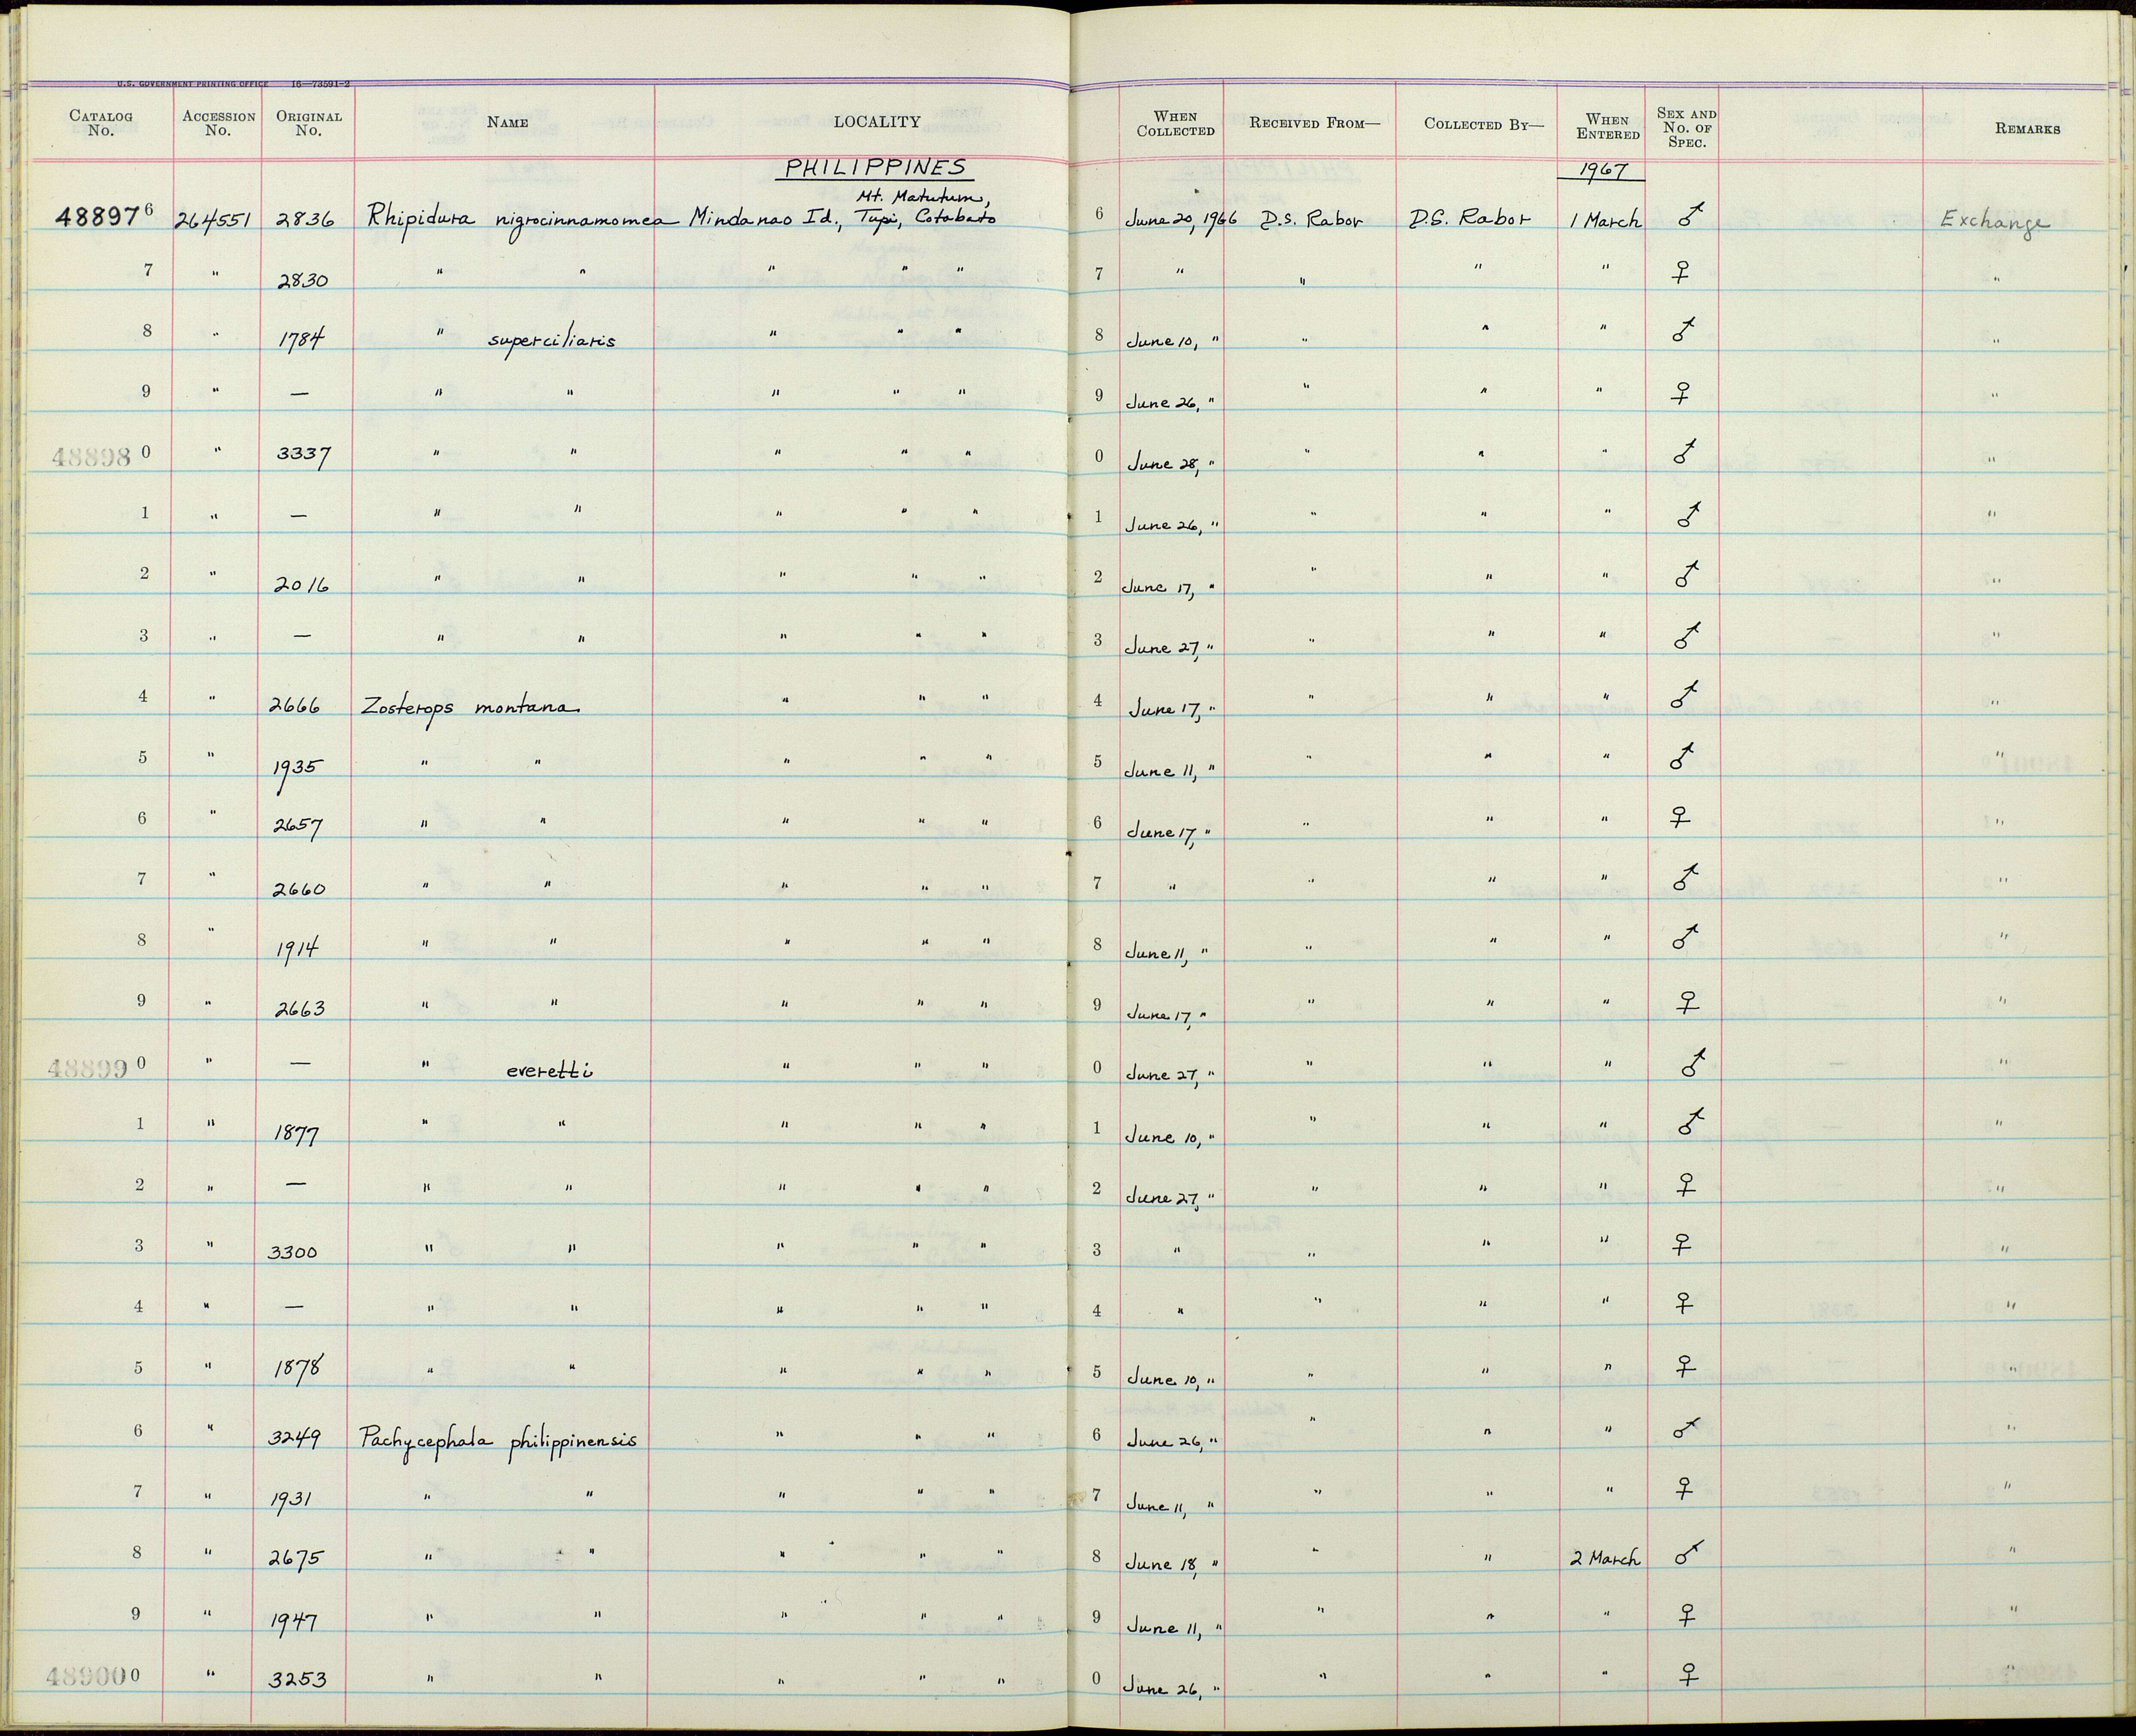 U.S. GOVERNMENT PRINTING OFFICE 16—73591-2
CATALOG No. ACCESSION No. ORIGINAL No. NAME LOCALITY WHEN COLLECTED RECEIVED FROM— COLLECTED BY— WHEN ENTERED SEX AND No. OF SPEC. REMARKS
PHILIPPINES 1967
Mt. Matutum,
488976 264551 2836 Rhipidura nigrocinnamomea Mindanao Id., Tupi, Cotabato 6 June 20, 1966 D.S. Rabor D.S. Rabor 1 March ♂ Exchange
7 " 2830 " " " " " 7 " " " " ♀ "
8 " 1784 " superciliaris " " " 8 June 10, " " " " ♂ "
9 " — " " " " " 9 June 26, " " " " ♀ "
488980 " 3337 " " " " " 0 June 28, " " " " ♂ "
1 " — " " " " " 1 June 26, " " " " ♂ "
2 " 2016 " " " " " 2 June 17, " " " " ♂ "
3 " — " " " " " 3 June 27, " " " " ♂ "
4 " 2666 Zosterops montana " " " 4 June 17, " " " " ♂ "
5 " 1935 " " " " " 5 June 11, " " " " ♂ "
6 " 2657 " " " " " 6 June 17, " " " " ♀ "
7 " 2660 " " " " " 7 " " " " ♂ "
8 " 1914 " " " " " 8 June 11, " " " " ♂ "
9 " 2663 " " " " " 9 June 17, " " " " ♀ "
488990 " — " everetti " " " 0 June 27, " " " " ♂ "
1 " 1877 " " " " " 1 June 10, " " " " ♂ "
2 " — " " " " " 2 June 27, " " " " ♀ "
3 " 3300 " " " " " 3 " " " " ♀ "
4 " — " " " " " 4 " " " " ♀ "
5 " 1878 " " " " " 5 June 10, " " " " ♀ "
6 " 3249 Pachycephala philippinensis " " " 6 June 26, " " " " ♂ "
7 " 1931 " " " " " 7 June 11, " " " " ♀ "
8 " 2675 " " " " " 8 June 18, " " " 2 March ♂ "
9 " 1947 " " " " " 9 June 11, " " " " ♀ "
489000 " 3253 " " " " " 0 June 26, " " " " ♀ "